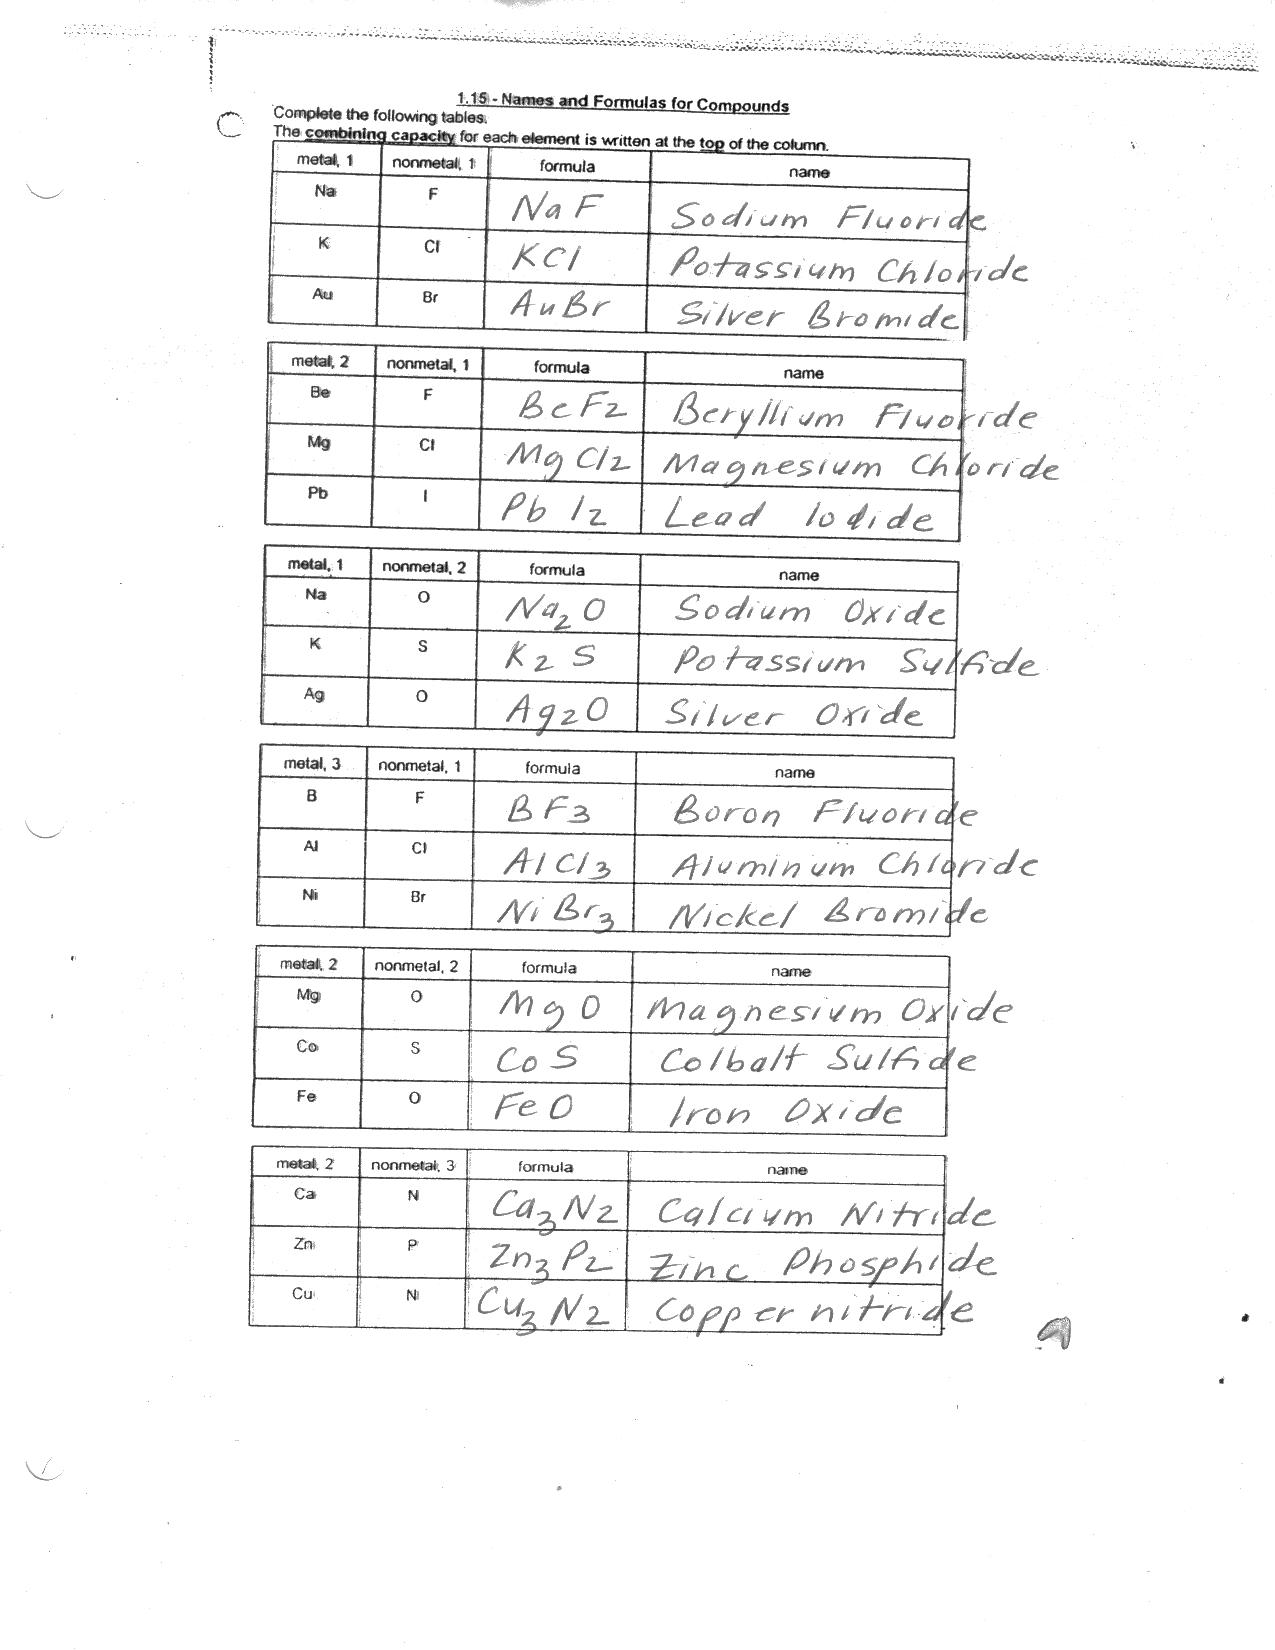 1.15 - Names and Formulas for Compounds
Complete the following tables.
The combining capacity for each element is written at the top of the column.
metal, 1 nonmetal, 1 formula name
Na F NaF Sodium Fluoride
K Cl KCl Potassium Chloride
Au Br AuBr Silver Bromide
metal, 2 nonmetal, 1 formula name
Be F BeF2 Beryllium Fluoride
Mg Cl MgCl2 Magnesium Chloride
Pb I PbI2 Lead Iodide
metal, 1 nonmetal, 2 formula name
Na O Na2O Sodium Oxide
K S K2S Potassium Sulfide
Ag O Ag2O Silver Oxide
metal, 3 nonmetal, 1 formula name
B F BF3 Boron Fluoride
Al Cl AlCl3 Aluminum Chloride
Ni Br NiBr3 Nickel Bromide
metal, 2 nonmetal, 2 formula name
Mg O MgO Magnesium Oxide
Co S CoS Colbalt Sulfide
Fe O FeO Iron Oxide
metal, 2 nonmetal, 3 formula name
Ca N Ca3N2 Calcium Nitride
Zn P Zn3P2 Zinc Phosphide
Cu N Cu3N2 Copper nitride